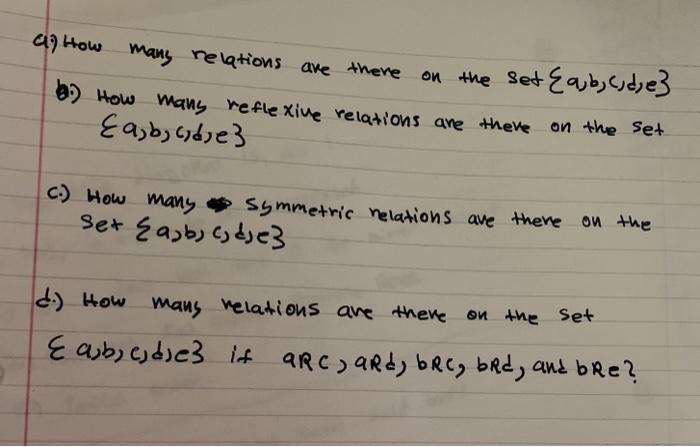 a) How many relations are there on the set {a,b,c,d,e}
b.) How many reflexive relations are there on the set
{a,b,c,d,e}
c.) How many symmetric relations are there on the
set {a,b,c,d,e}
d.) How many relations are there on the set
{a,b,c,d,e} if aRc, aRd, bRc, bRd, and bRe?